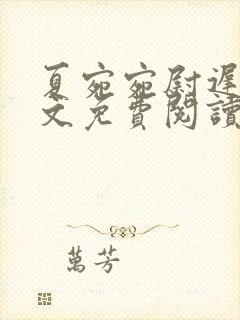 夏宛宛尉遲
文免費閱讀
萬芳